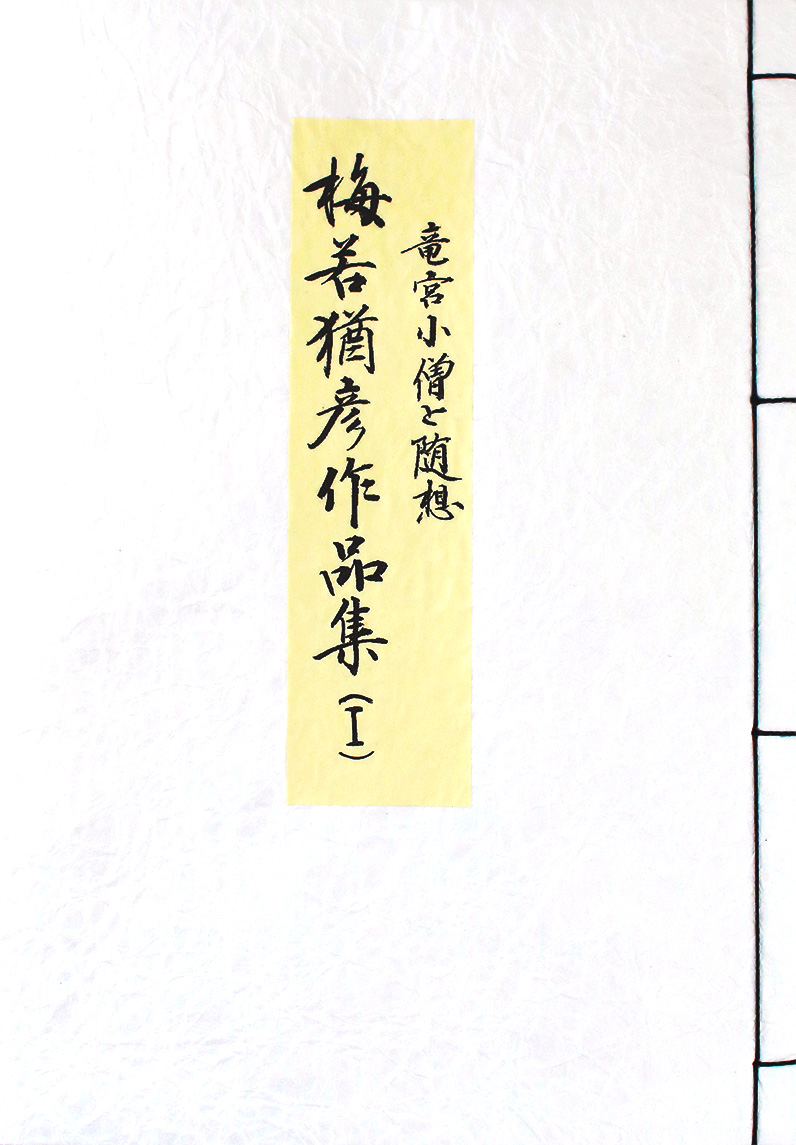 竜宮小僧と随想
梅若猶彦作品集(I)